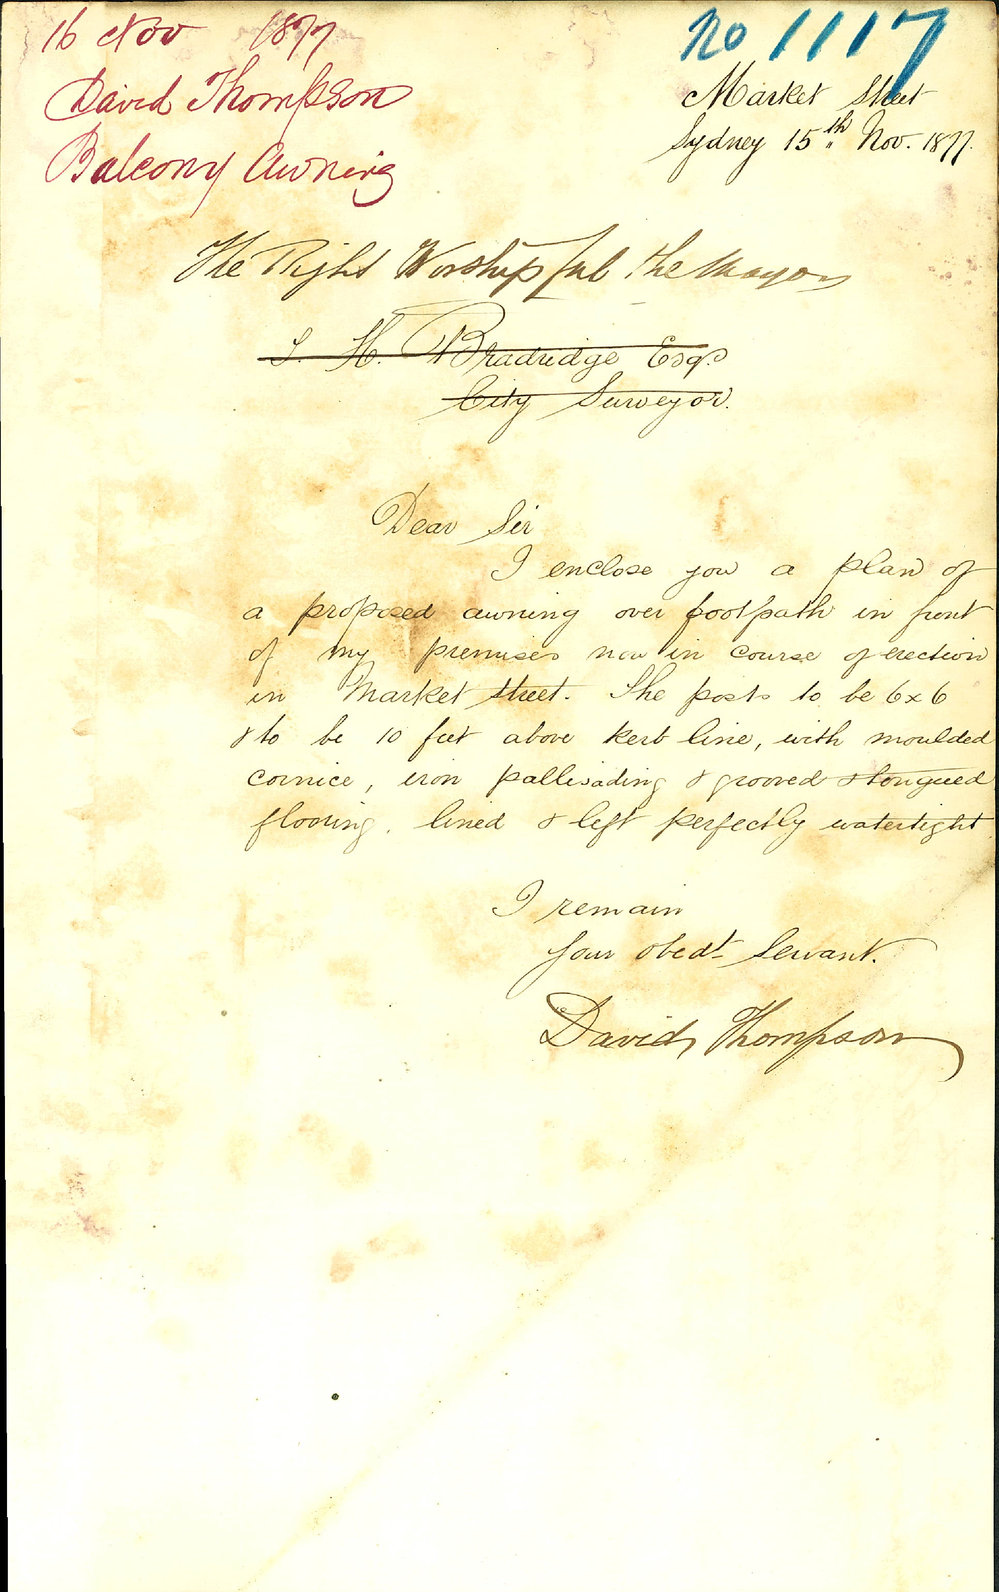 16 Nov 1877
David Thompson
Balcony Awning
No 1117
Market Street
Sydney 15th Nov. 1877.
The Right Worshipful the Mayor
T. H. Bradridge Esqr
City Surveyor.
Dear Sir
I enclose you a plan of
a proposed awning over footpath in front
of my premises now in course of erection
in Market Street. The posts to be 6x6
& to be 10 feet above kerb line, with moulded
cornice, iron pallisading & grooved & tongued
flooring, lined & left perfectly watertight
I remain
Your obedt Servant.
David Thompson